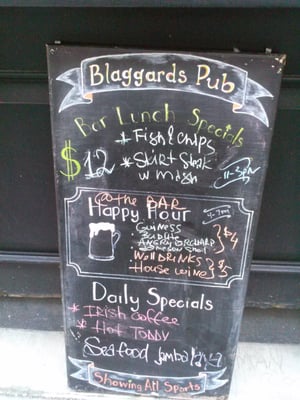 Blaggards Pub
Bar Lunch Specials
$12
* Fish & Chips
* Skirt Steak
w mash
11-3pm
@ the BAR
Happy Hour
4-7pm
Guiness
Bud Lite
ANGRY ORCHARD
$4
Well DRINKS
House wine
$5
Daily Specials
* IRISH Coffee
* HOT TODDY
Seafood Jambalaya
Showing All Sports